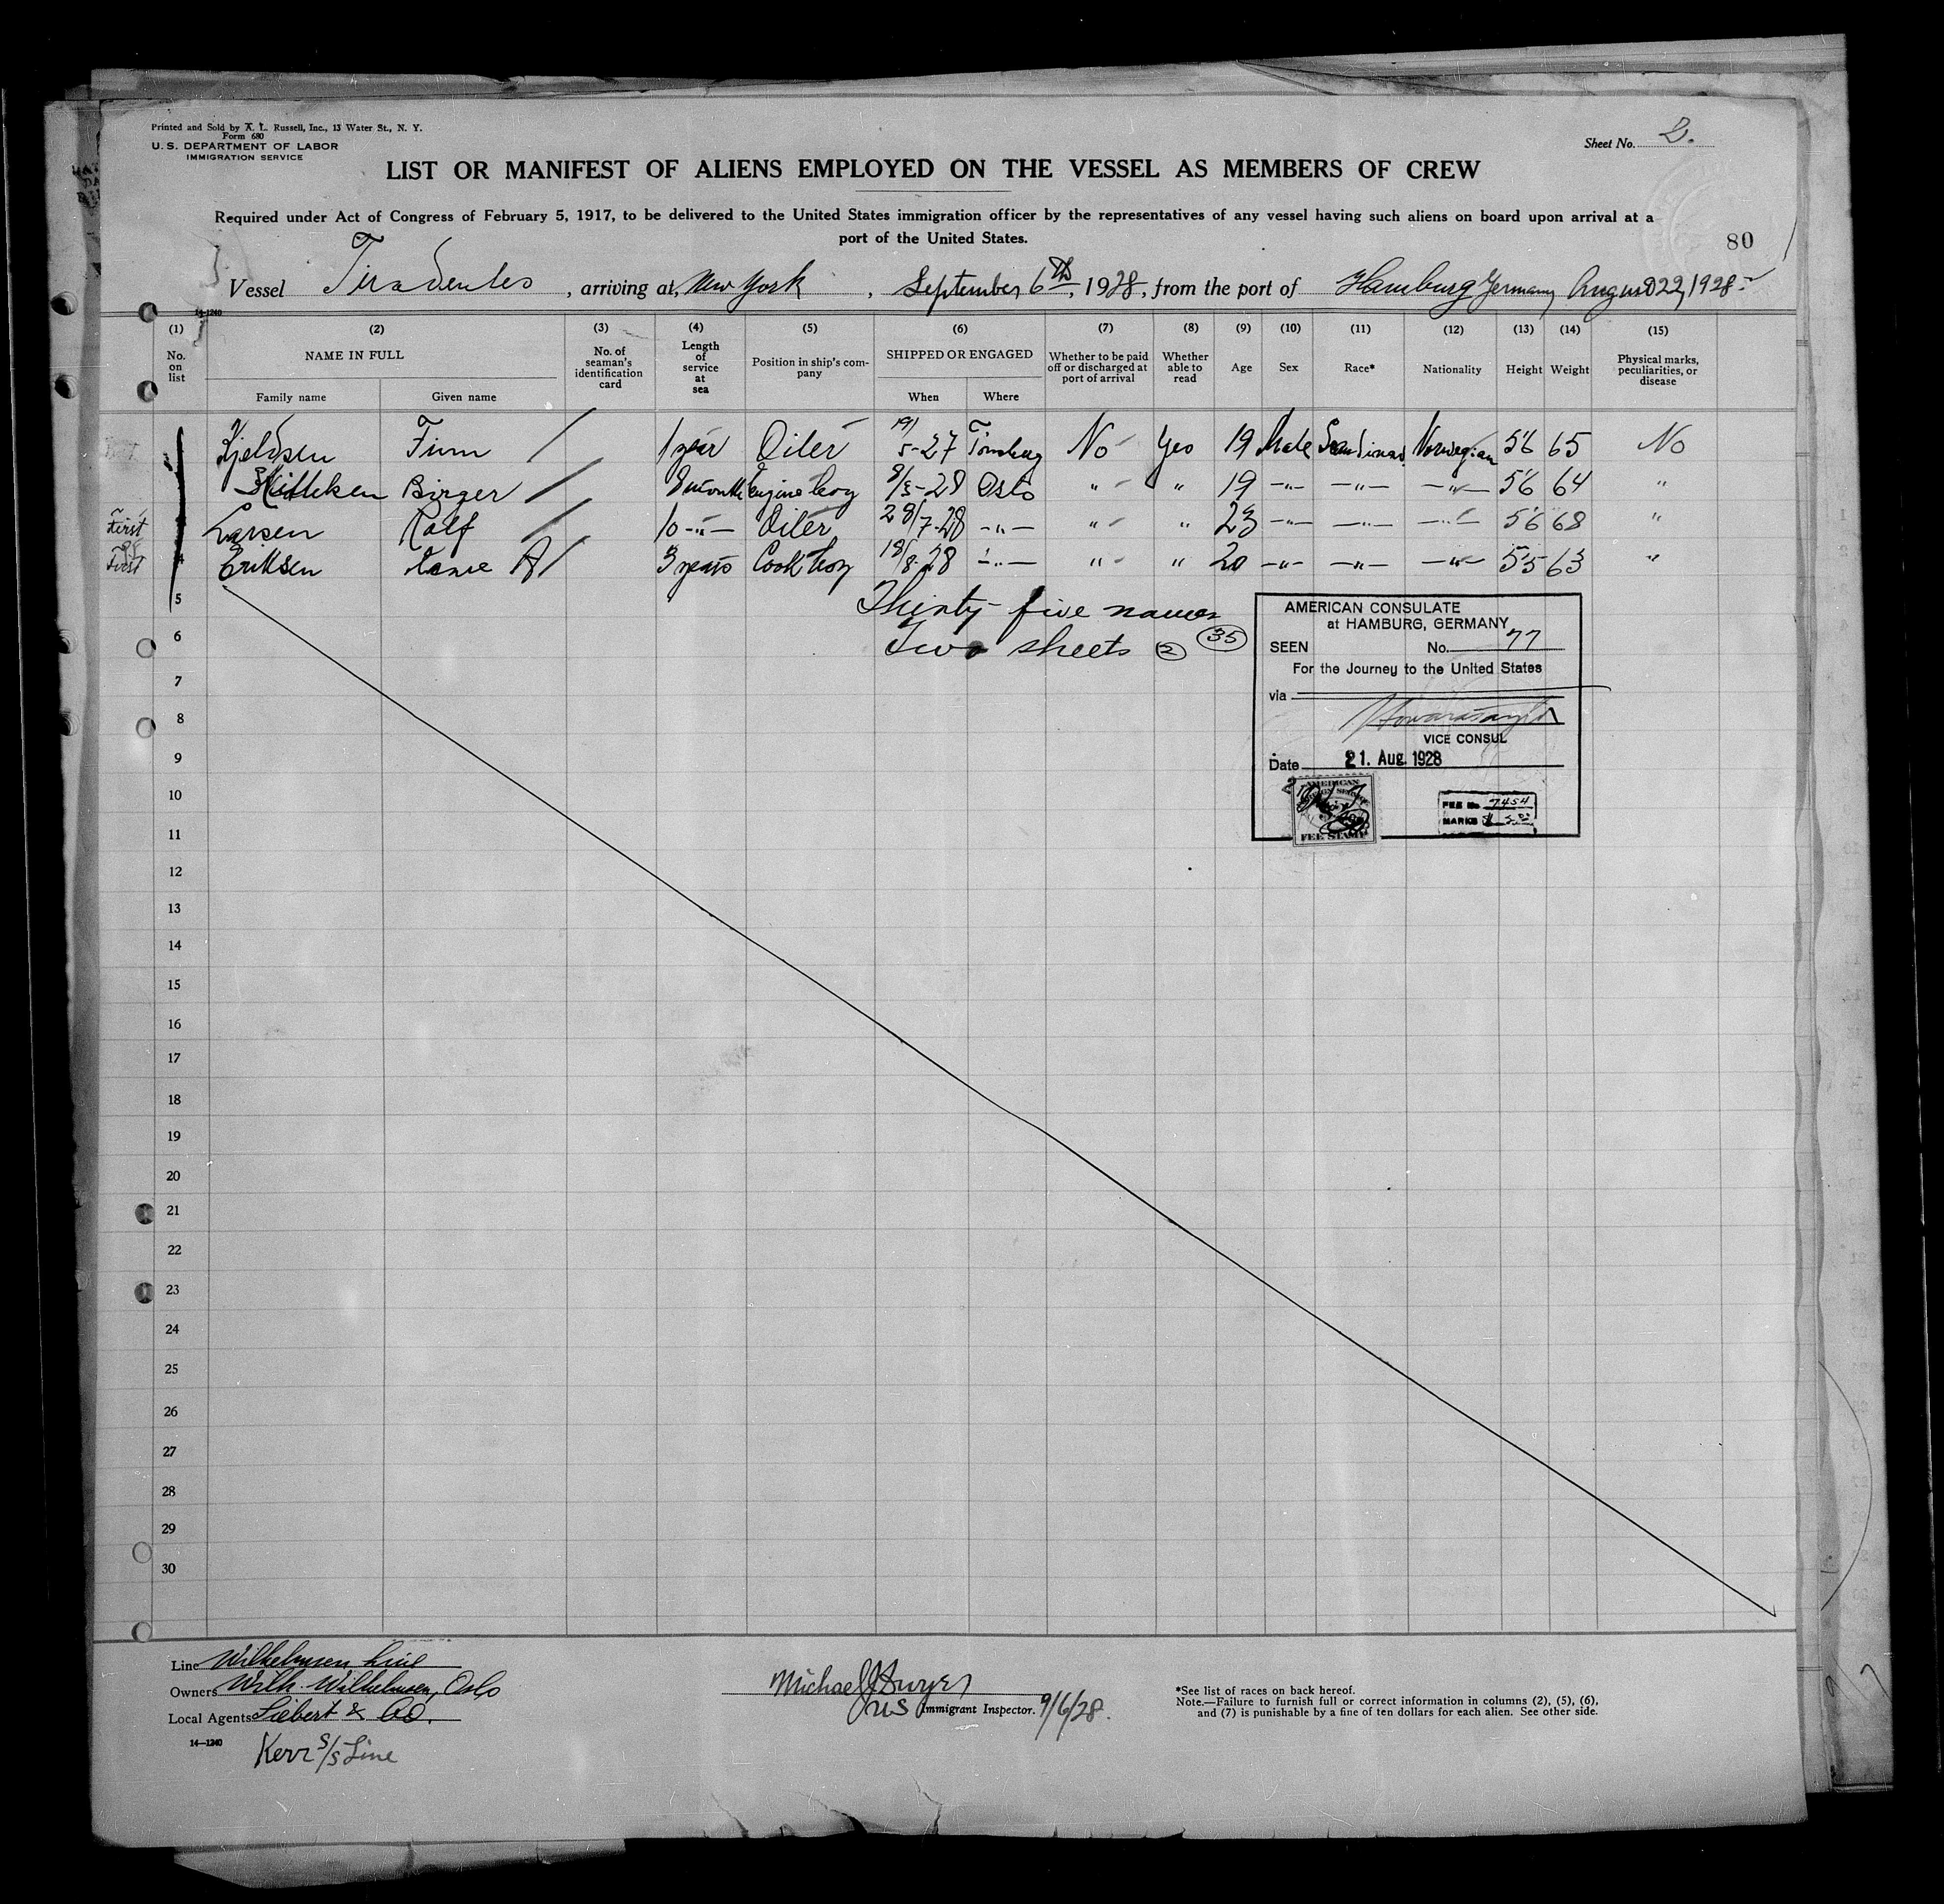 Printed and Sold by A. L. Russell, Inc., 13 Water St., N. Y.
Form 680
U. S. DEPARTMENT OF LABOR
IMMIGRATION SERVICE
Sheet No. 2.
LIST OR MANIFEST OF ALIENS EMPLOYED ON THE VESSEL AS MEMBERS OF CREW
Required under Act of Congress of February 5, 1917, to be delivered to the United States immigration officer by the representatives of any vessel having such aliens on board upon arrival at a
port of the United States.
80
Vessel Tiradentes, arriving at New York, September 6th, 1928, from the port of Hamburg Germany August 22, 1928.
14-1240
(1) (2) (3) (4) (5) (6) (7) (8) (9) (10) (11) (12) (13) (14) (15)
No. on list NAME IN FULL No. of seaman's identification card Length of service at sea Position in ship's company SHIPPED OR ENGAGED Whether to be paid off or discharged at port of arrival Whether able to read Age Sex Race* Nationality Height Weight Physical marks, peculiarities, or disease
Family name Given name When Where
Kjeldsen Finn / 1 year Oiler 19/5-27 Tönsberg No Yes 19 Male Scandinav. Norwegian 5'6 65 No
Birger / 8 month Engine boy 8/5-28 Oslo " " 19 -"- -"- -"- 5'6 64 "
First Larsen Rolf / 10 -"- Oiler 28/7-28 -"- " " 23 -"- -"- -"- 5'6 68 "
First 4 Eriksen A / 3 years Cook boy 18/8-28 -"- " " 20 -"- -"- -"- 5'5 63 "
Thirty-five names (35)
Two sheets (2)
5
6
7
8
9
10
11
12
13
14
15
16
17
18
19
20
21
22
23
24
25
26
27
28
29
30
AMERICAN CONSULATE
at HAMBURG, GERMANY
SEEN No. 77
For the Journey to the United States
via
VICE CONSUL
Date 21. Aug. 1928
AMERICAN
FEE STAMP
FEE No. 7454
MARKS
Line Wilhelmsen Line
Owners Wilh. Wilhelmsen, Oslo
Local Agents Siebert & Co.
14-1240
Kerr S/S Line
Michael J Dwyer
US Immigrant Inspector. 9/6/28.
*See list of races on back hereof.
Note.—Failure to furnish full or correct information in columns (2), (5), (6),
and (7) is punishable by a fine of ten dollars for each alien. See other side.